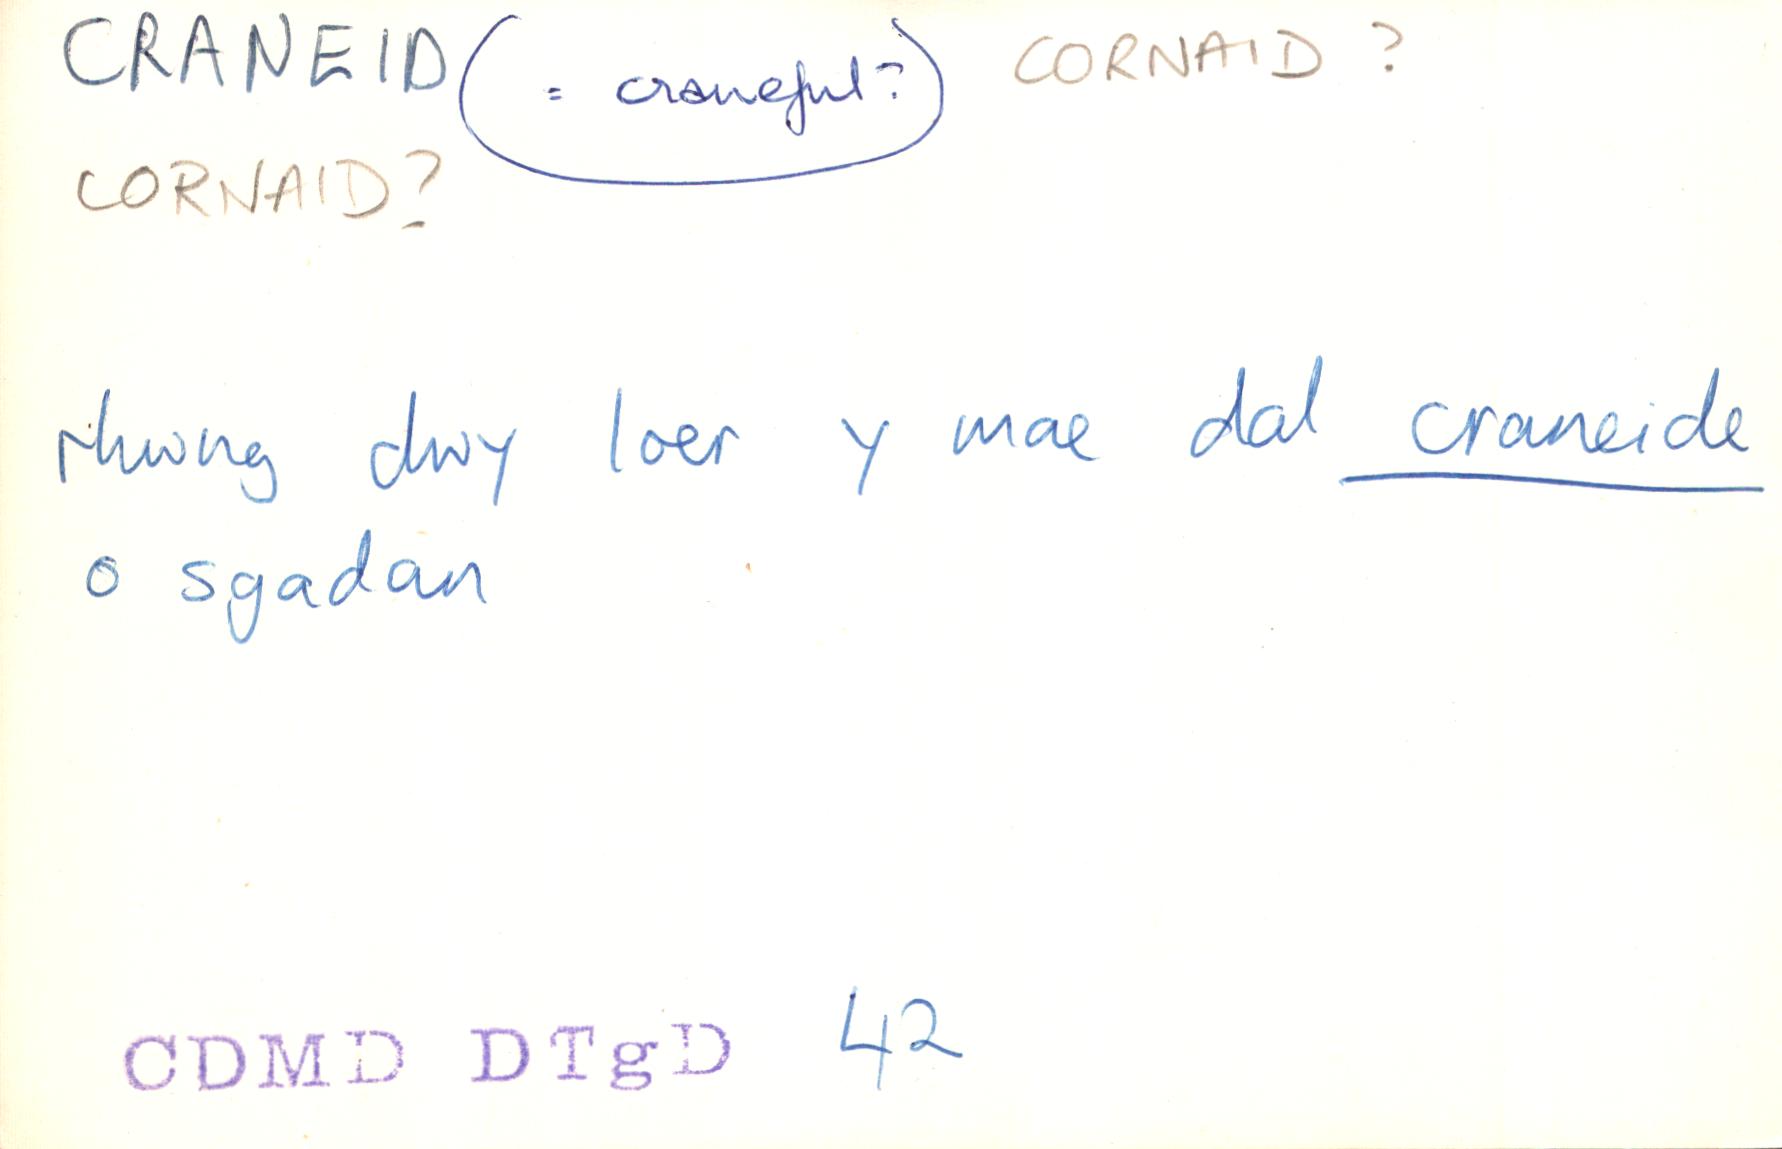 CRANEID (= craneful?) CORNAID ?
CORNAID?
rhwng dwy loer y mae dal craneide
o sgadan
CDMD DTgD 42